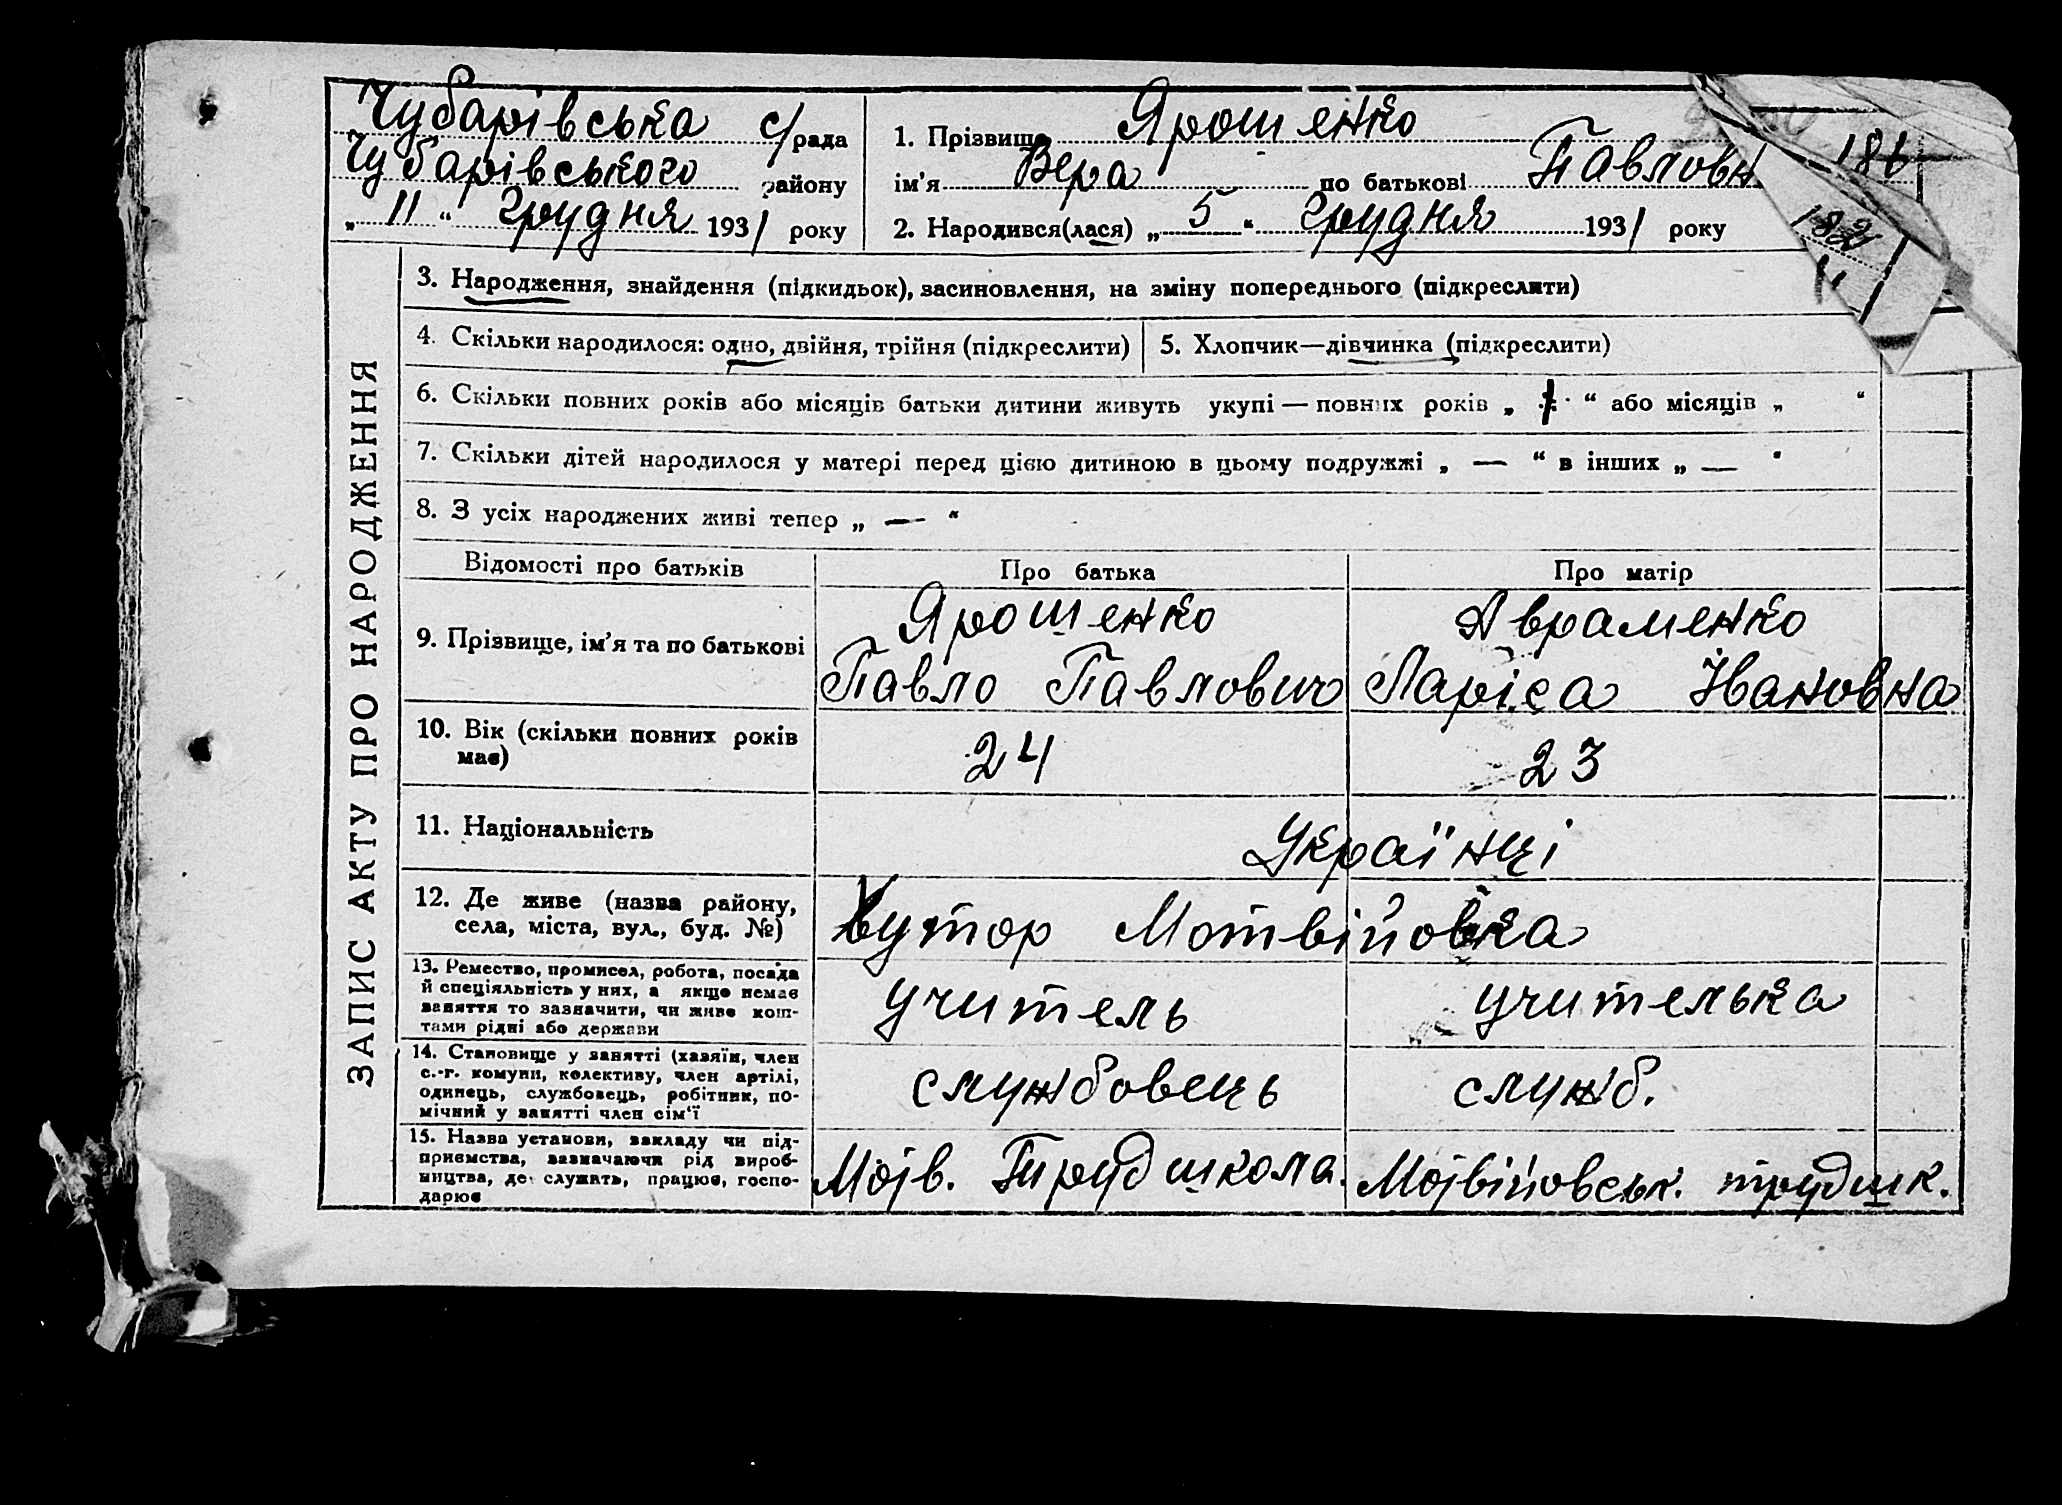 Чубарівська с/рада
Чубарівського району
„ 11 “ грудня 1931 року
1. Прізвище Ярошенко
ім'я Вера по батькові Павловн
2. Народився(лася) „ 5 “ грудня 1931 року
182
ЗАПИС АКТУ ПРО НАРОДЖЕННЯ
3. Народження, знайдення (підкидьок), засиновлення, на зміну попереднього (підкреслити)
4. Скільки народилося: одно, двійня, трійня (підкреслити)
5. Хлопчик—дівчинка (підкреслити)
6. Скільки повних років або місяців батьки дитини живуть укупі — повних років „ “ або місяців „ “
7. Скільки дітей народилося у матері перед цією дитиною в цьому подружжі „ — “ в інших „ — “
8. З усіх народжених живі тепер „ — “
Відомості про батьків
Про батька
Про матір
9. Прізвище, ім'я та по батькові
Ярошенко
Павло Павлович
Авраменко
Ларіса Івановна
10. Вік (скільки повних років
має)
24
23
11. Національність
Українці
12. Де живе (назва району,
села, міста, вул., буд. №)
Хутор Мотвійовка
13. Ремество, промисел, робота, посада
й спеціяльність у них, а якщо немає
заняття то зазначити, чи живе кош-
тами рідні або держави
учитель
учителька
14. Становище у занятті (хазяїн, член
с.-г. комуни, колективу, член артілі,
одинець, службовець, робітник, по-
мічний у занятті член сім'ї
службовець
служб.
15. Назва установи, закладу чи під-
приємства, зазначаючи рід вироб-
ництва, де служить, працює, госпо-
дарює
Мојв. Трудшкола.
Мојвійовськ. трудшк.